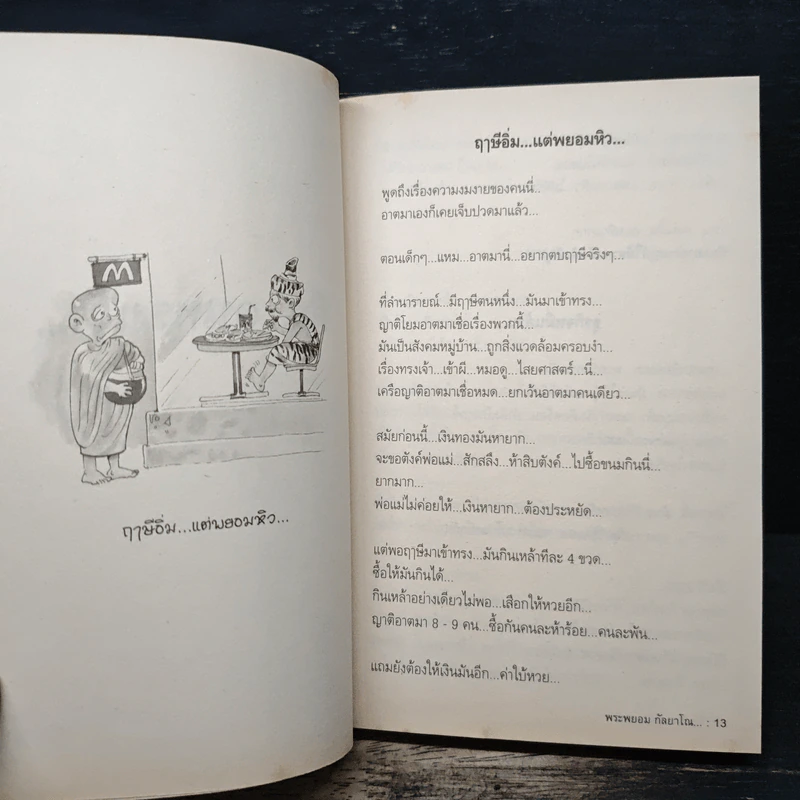 ฤๅษีอิ่ม...แต่พยอมหิว...
ฤๅษีอิ่ม...แต่พยอมหิว...
พูดถึงเรื่องความงมงายของคนนี่..
อาตมาเองก็เคยเจ็บปวดมาแล้ว...
ตอนเด็กๆ...แหม...อาตมานี่...อยากตบฤๅษีจริงๆ...
ที่ลำนารายณ์...มีฤๅษีตนหนึ่ง...มันมาเข้าทรง...
ญาติโยมอาตมาเชื่อเรื่องพวกนี้...
มันเป็นสังคมหมู่บ้าน...ถูกสิ่งแวดล้อมครอบงำ...
เรื่องทรงเจ้า...เข้าผี...หมอดู...ไสยศาสตร์...นี่...
เครือญาติอาตมาเชื่อหมด...ยกเว้นอาตมาคนเดียว...
สมัยก่อนนี้...เงินทองมันหายาก...
จะขอตังค์พ่อแม่...สักสลึง...ห้าสิบตังค์...ไปซื้อขนมกินนี่...
ยากมาก...
พ่อแม่ไม่ค่อยให้...เงินหายาก...ต้องประหยัด...
แต่พอฤๅษีมาเข้าทรง...มันกินเหล้าทีละ 4 ขวด...
ซื้อให้มันกินได้...
กินเหล้าอย่างเดียวไม่พอ...เสือกให้หวยอีก...
ญาติอาตมา 8 - 9 คน...ซื้อกันคนละห้าร้อย...คนละพัน...
แถมยังต้องให้เงินมันอีก...ค่าใบ้หวย...
พระพยอม กัลยาโณ... : 13